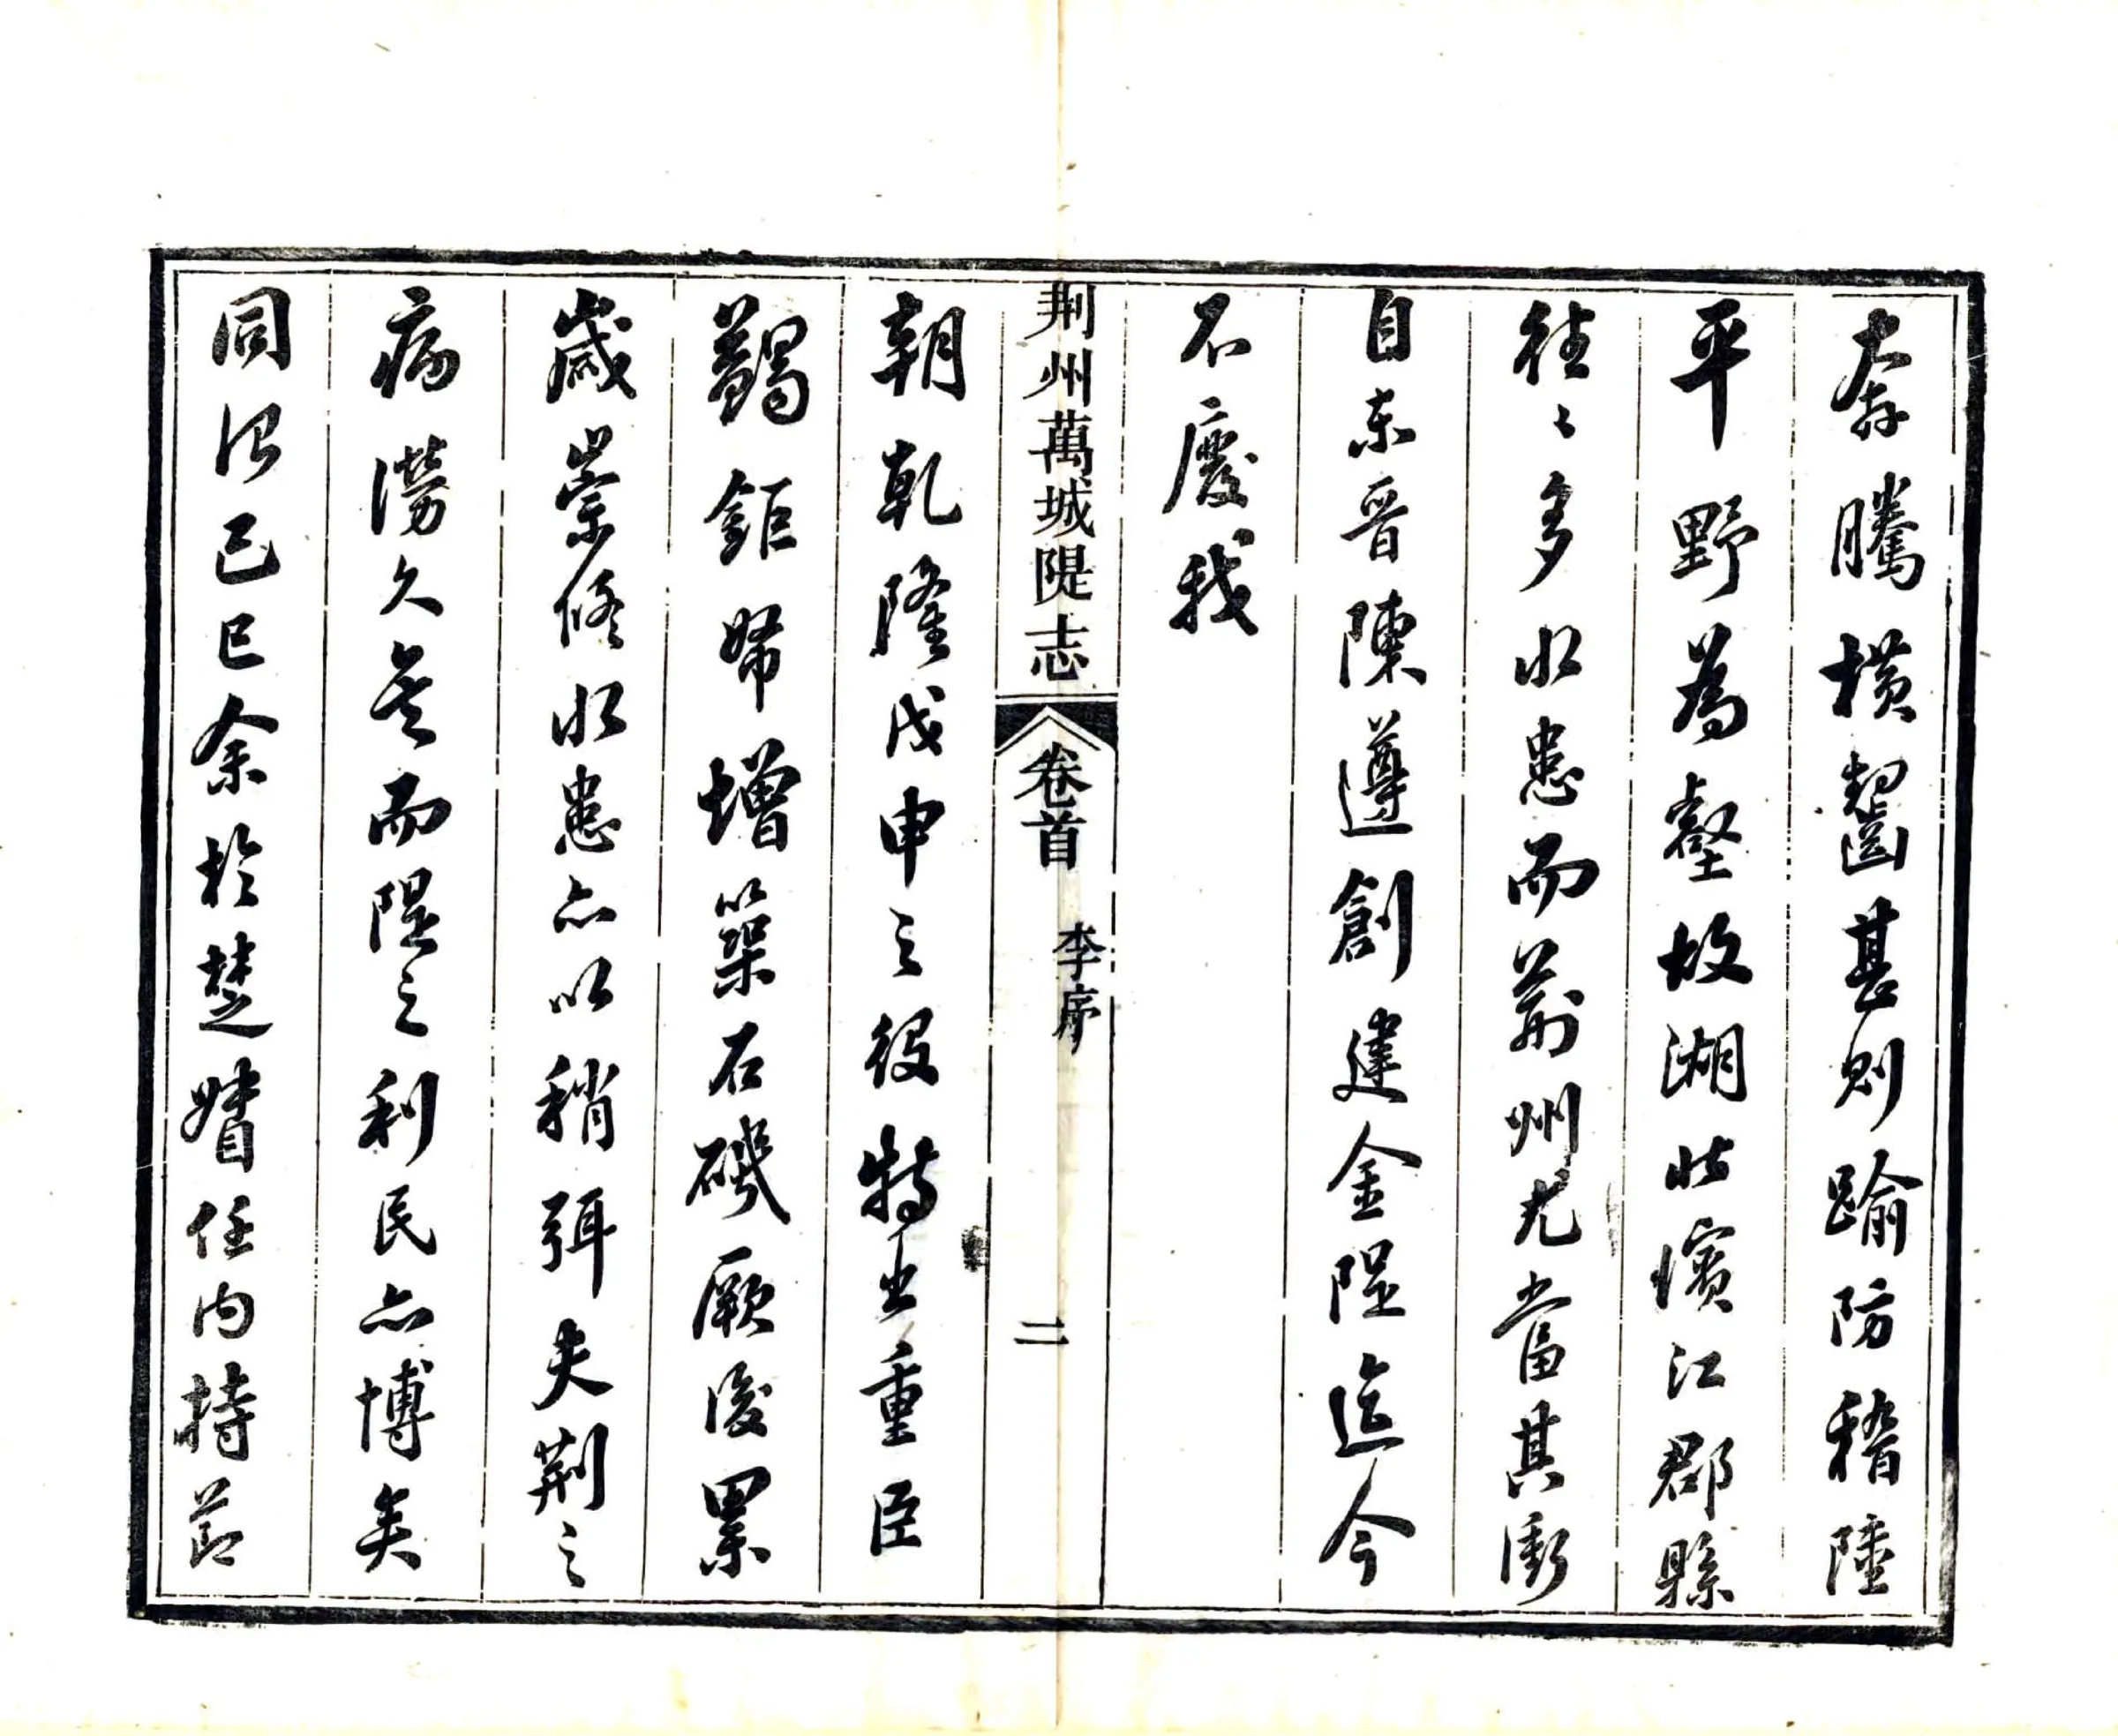 奔騰橫齧甚則踰防稽陸
平野為壑故湖北濱江郡縣
往〻多水患而荊州尤當其衝
自東晉陳遵創建金隄迄今
不廢我
荆州萬城隄志 卷首 李序 二
朝乾隆戊申之役特出重臣
蠲鉅帑增築石磯厥後累
歲崇修水患亦以稍弭夫荊之
病澇久矣而隄之利民亦博矣
同治己巳余於楚督任內持節